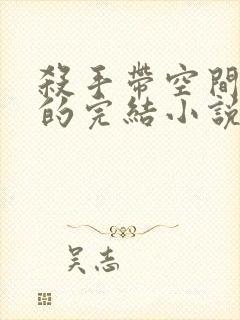 殺手帶空間
的完結小説
吴志